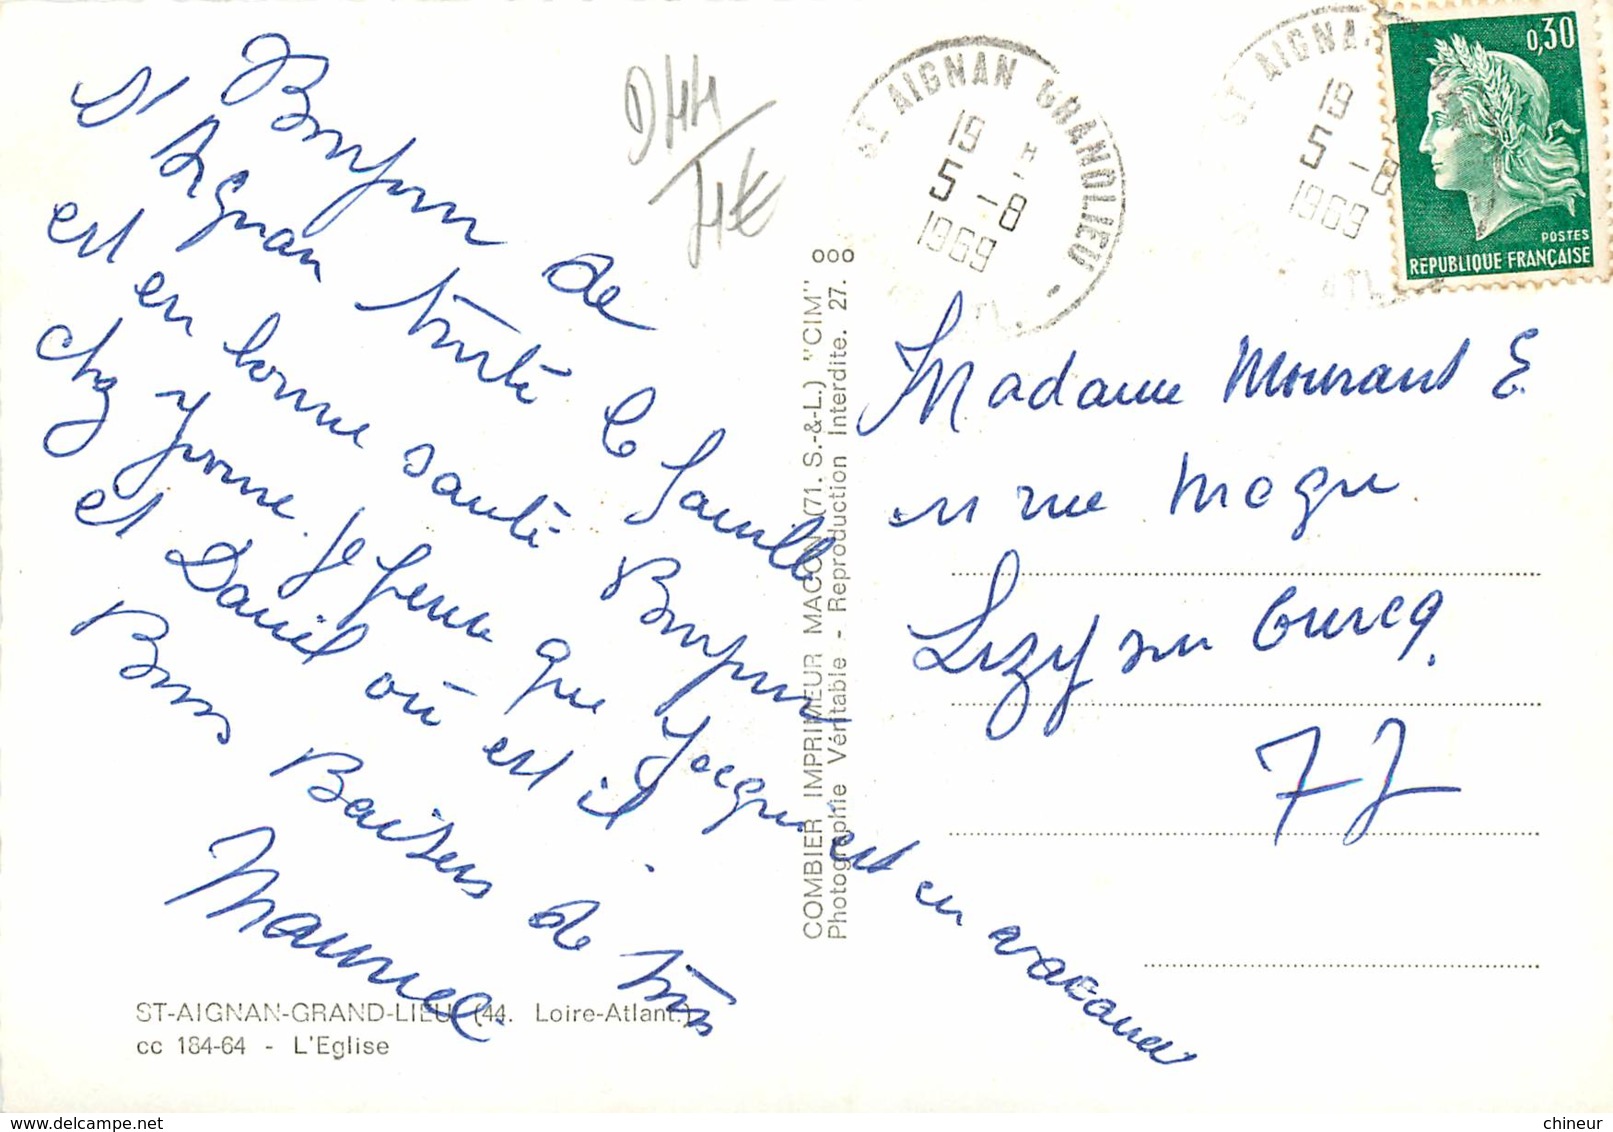 Bonjour de
S' Aignan toute la famille
est en bonne santé Bonjour
chez Yvonne. Je pense que Jacques est en vacances
et Daniel où est il.
Bons Baisers de tous
Maurice
D44
4€
ST AIGNAN GRANDLIEU
19 H
5 -8
1969
ST AIGNAN
19
5 -8
1969
0,30
POSTES
REPUBLIQUE FRANÇAISE
Madame Mourant E.
rue
Lizy sur Ourcq.
77
COMBIER IMPRIMEUR MACON (71. S.-&-L.) "CIM"
Photographie Véritable - Reproduction Interdite. 27.
ST-AIGNAN-GRAND-LIEU (44. Loire-Atlant.)
cc 184-64 - L'Eglise
chineur
delcampe.net